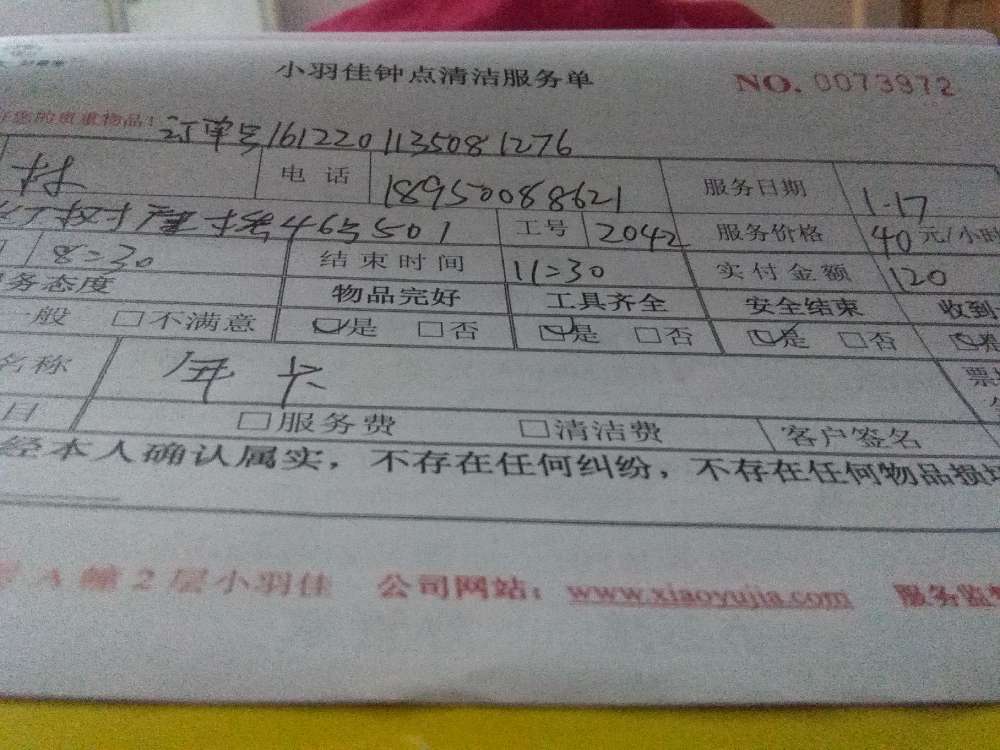 小羽佳钟点清洁服务单 NO. 0073972
您的贵重物品! 订单号161220113508 1276
林 电话 18950088621 服务日期 1.17
村 46号501 工号 2042 服务价格 40元/小时
8:30 结束时间 11:30 实付金额 120
务态度 物品完好 工具齐全 安全结束 收到
一般 □不满意 ☑是 □否 ☑是 □否 ☑是 □否 ☑是
名称 年卡 票
日 □服务费 □清洁费 客户签名
经本人确认属实，不存在任何纠纷，不存在任何物品损坏
A幢2层小羽佳 公司网站：www.xiaoyujia.com 服务监督